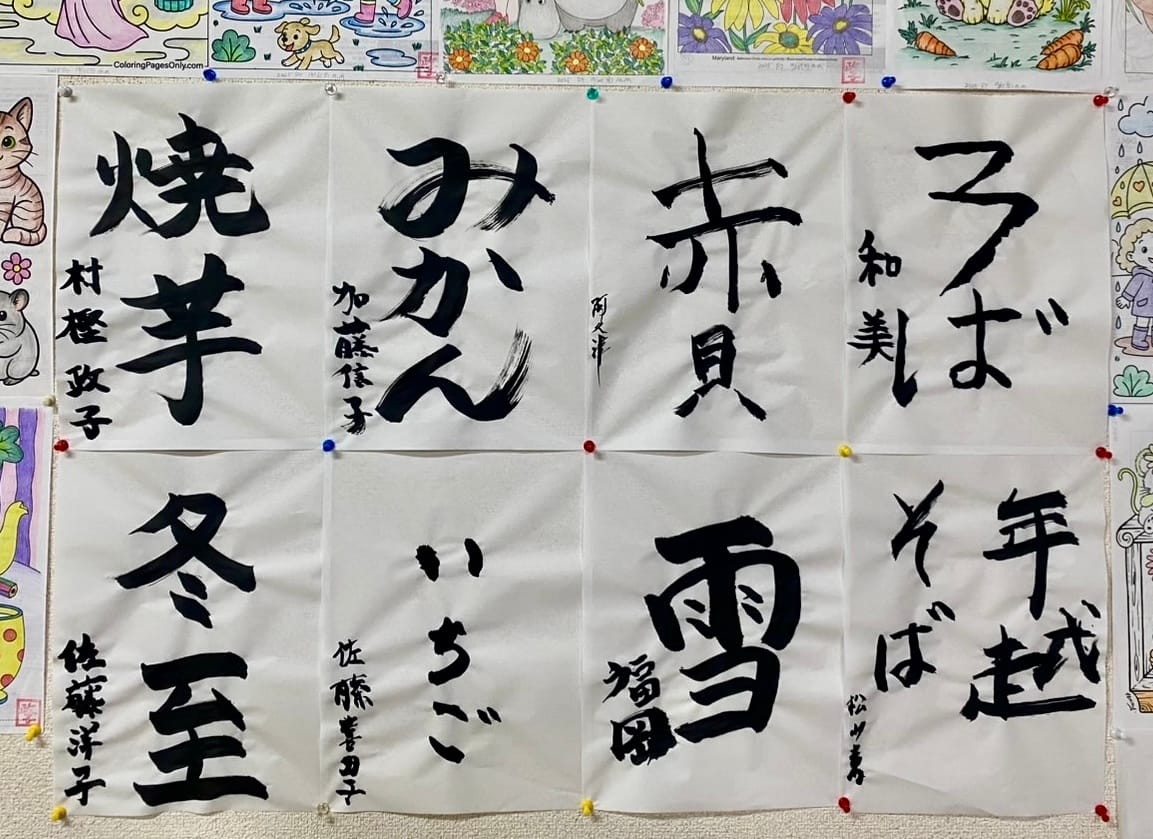 ColoringPagesOnly.com
Maryland
焼芋
村樫政子
みかん
加藤信子
赤貝
阿久津
そば
和美
冬至
佐藤洋子
いちご
佐藤
雪
福岡
年越
そば
松山